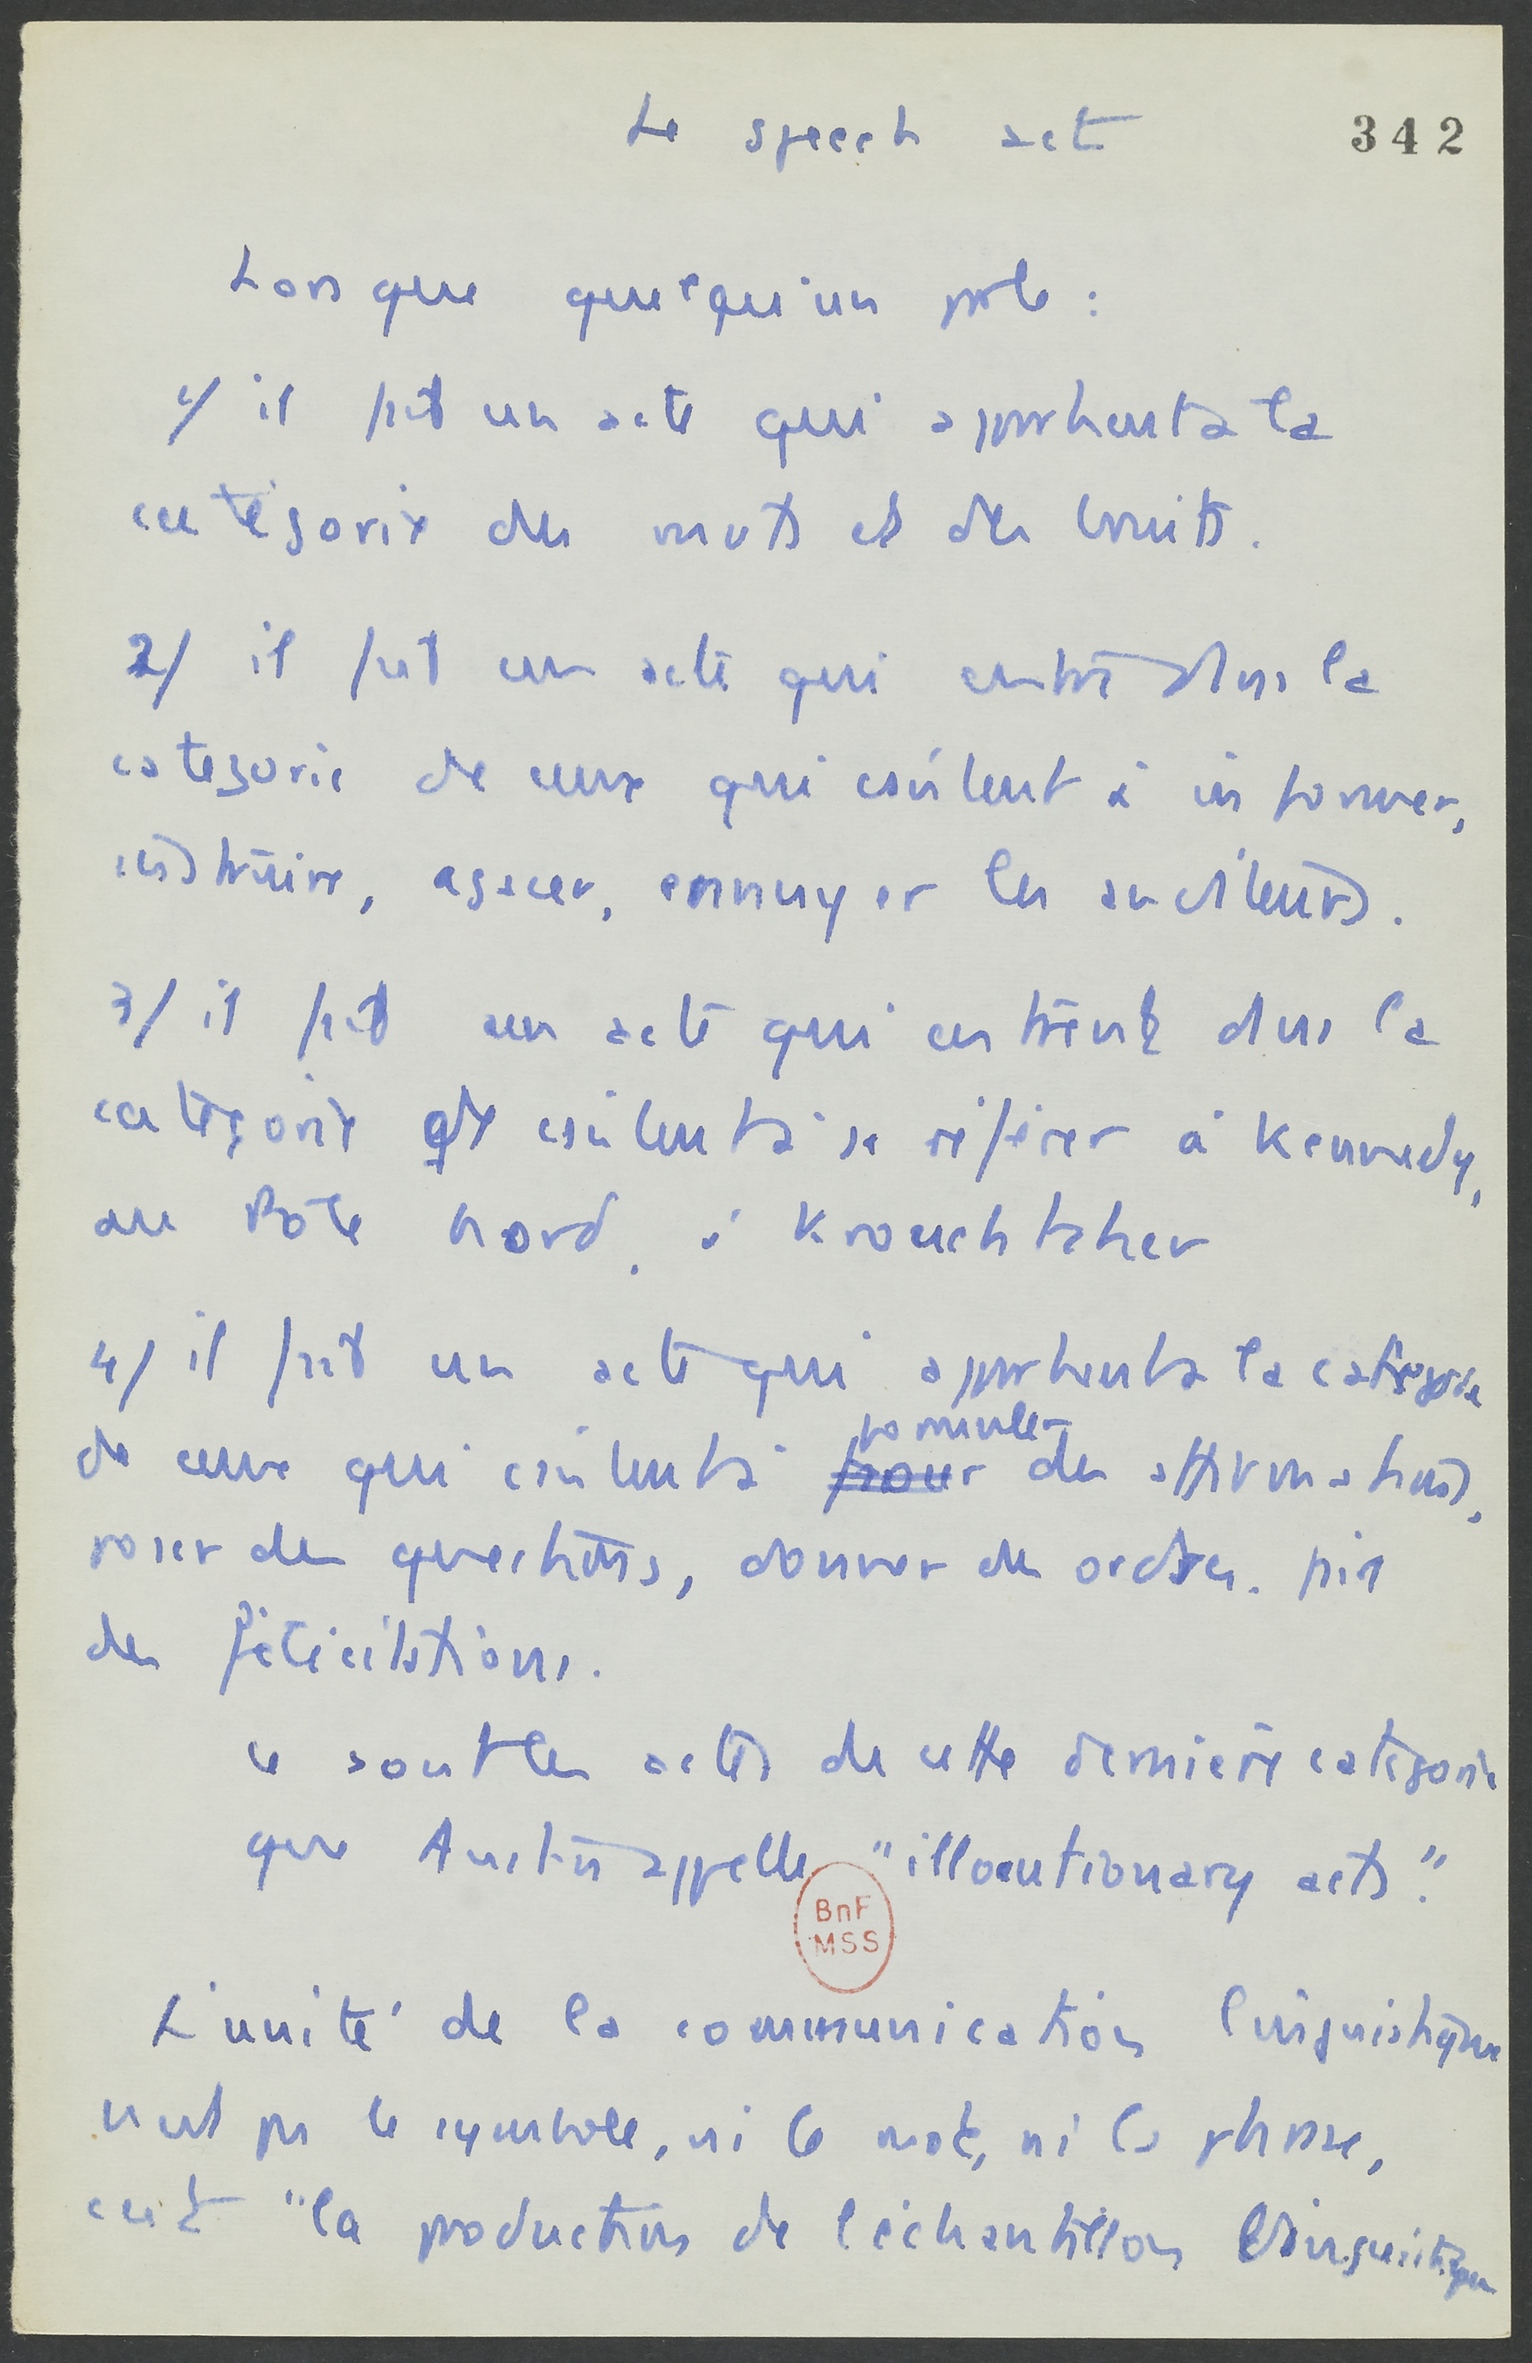 Le speech act
342
Lorsque quelqu'un parle :
1/ il fait un acte qui appartient à la
catégorie des mots et des bruits.
2/ il fait un acte qui entre dans la
catégorie de ceux qui consistent à informer,
instruire, agacer, ennuyer les auditeurs.
3/ il fait un acte qui entre dans la
catégorie de consistent à se référer à Kennedy,
au Pôle Nord, à Krouchtchev
4/ il fait un acte qui appartient à la catégorie
formuler
de ceux qui consistent à des affirmations,
poser des questions, donner des ordres. faire
des félicitations.
Ce sont les actes de cette dernière catégorie
que Austin appelle "illocutionary acts".
BnF
MSS
L'unité de la communication linguistique
n'est pas le symbole, ni le mot, ni la phrase,
c'est "la production de l'échantillon linguistique